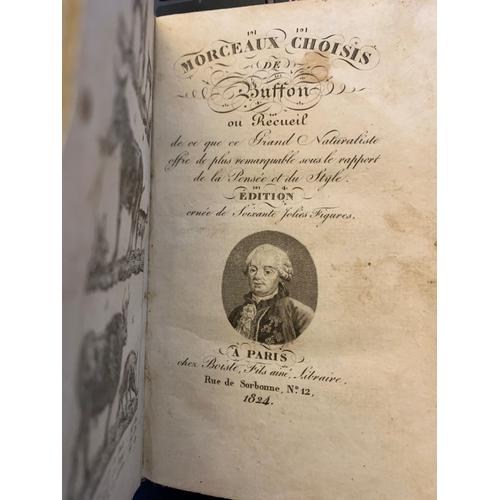 MORCEAUX CHOISIS
DE
Buffon
ou Recueil
de ce que ce Grand Naturaliste
offre de plus remarquable sous le rapport
de la Pensée et du Style.
EDITION
ornée de Soixante Jolies Figures.
À PARIS
chez Boiste, Fils ainé, Libraire.
Rue de Sorbonne, Nº 12,
1824.